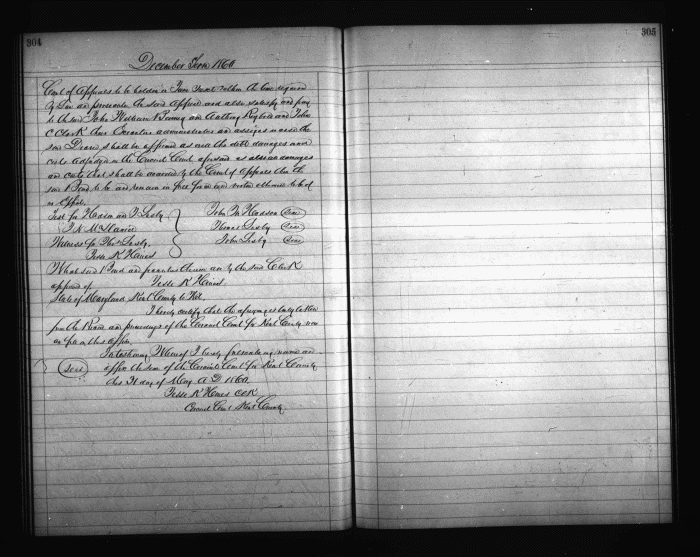 304
305
December Term 1860
Court of Appeals to be holden in June next within the time required
by law and prosecute the said Appeal and also satisfy and pay
to the said John William and Anthony and John
C Clark their Executors administrators and assigns in case the
said Decree shall be affirmed as well the debt damages and
costs adjudged in the Circuit Court aforesaid as also all damages
and costs that shall be awarded by the Court of Appeals then the
said Bond to be and remain in full force and virtue otherwise to be of
no Effect.
Test for Hadson and T. Lusby John W Hadson Seal
Thomas Lusby Seal
Witness for Thos Lusby, John Lusby Seal
Jesse K Hines
Which said Bond and thereon are by the said Clerk
approved of Jesse K Hines
State of Maryland Kent County to Wit,
I hereby certify that the aforegoing is truly taken
from the Record and proceedings of the Circuit Court for Kent County now
on file in this office,
In testimony Whereof I hereby subscribe my name and
Seal affix the seal of the Circuit Court for Kent County
this 31 day of May A D 1860
Jesse K Hines Clk
Circuit Court Kent County